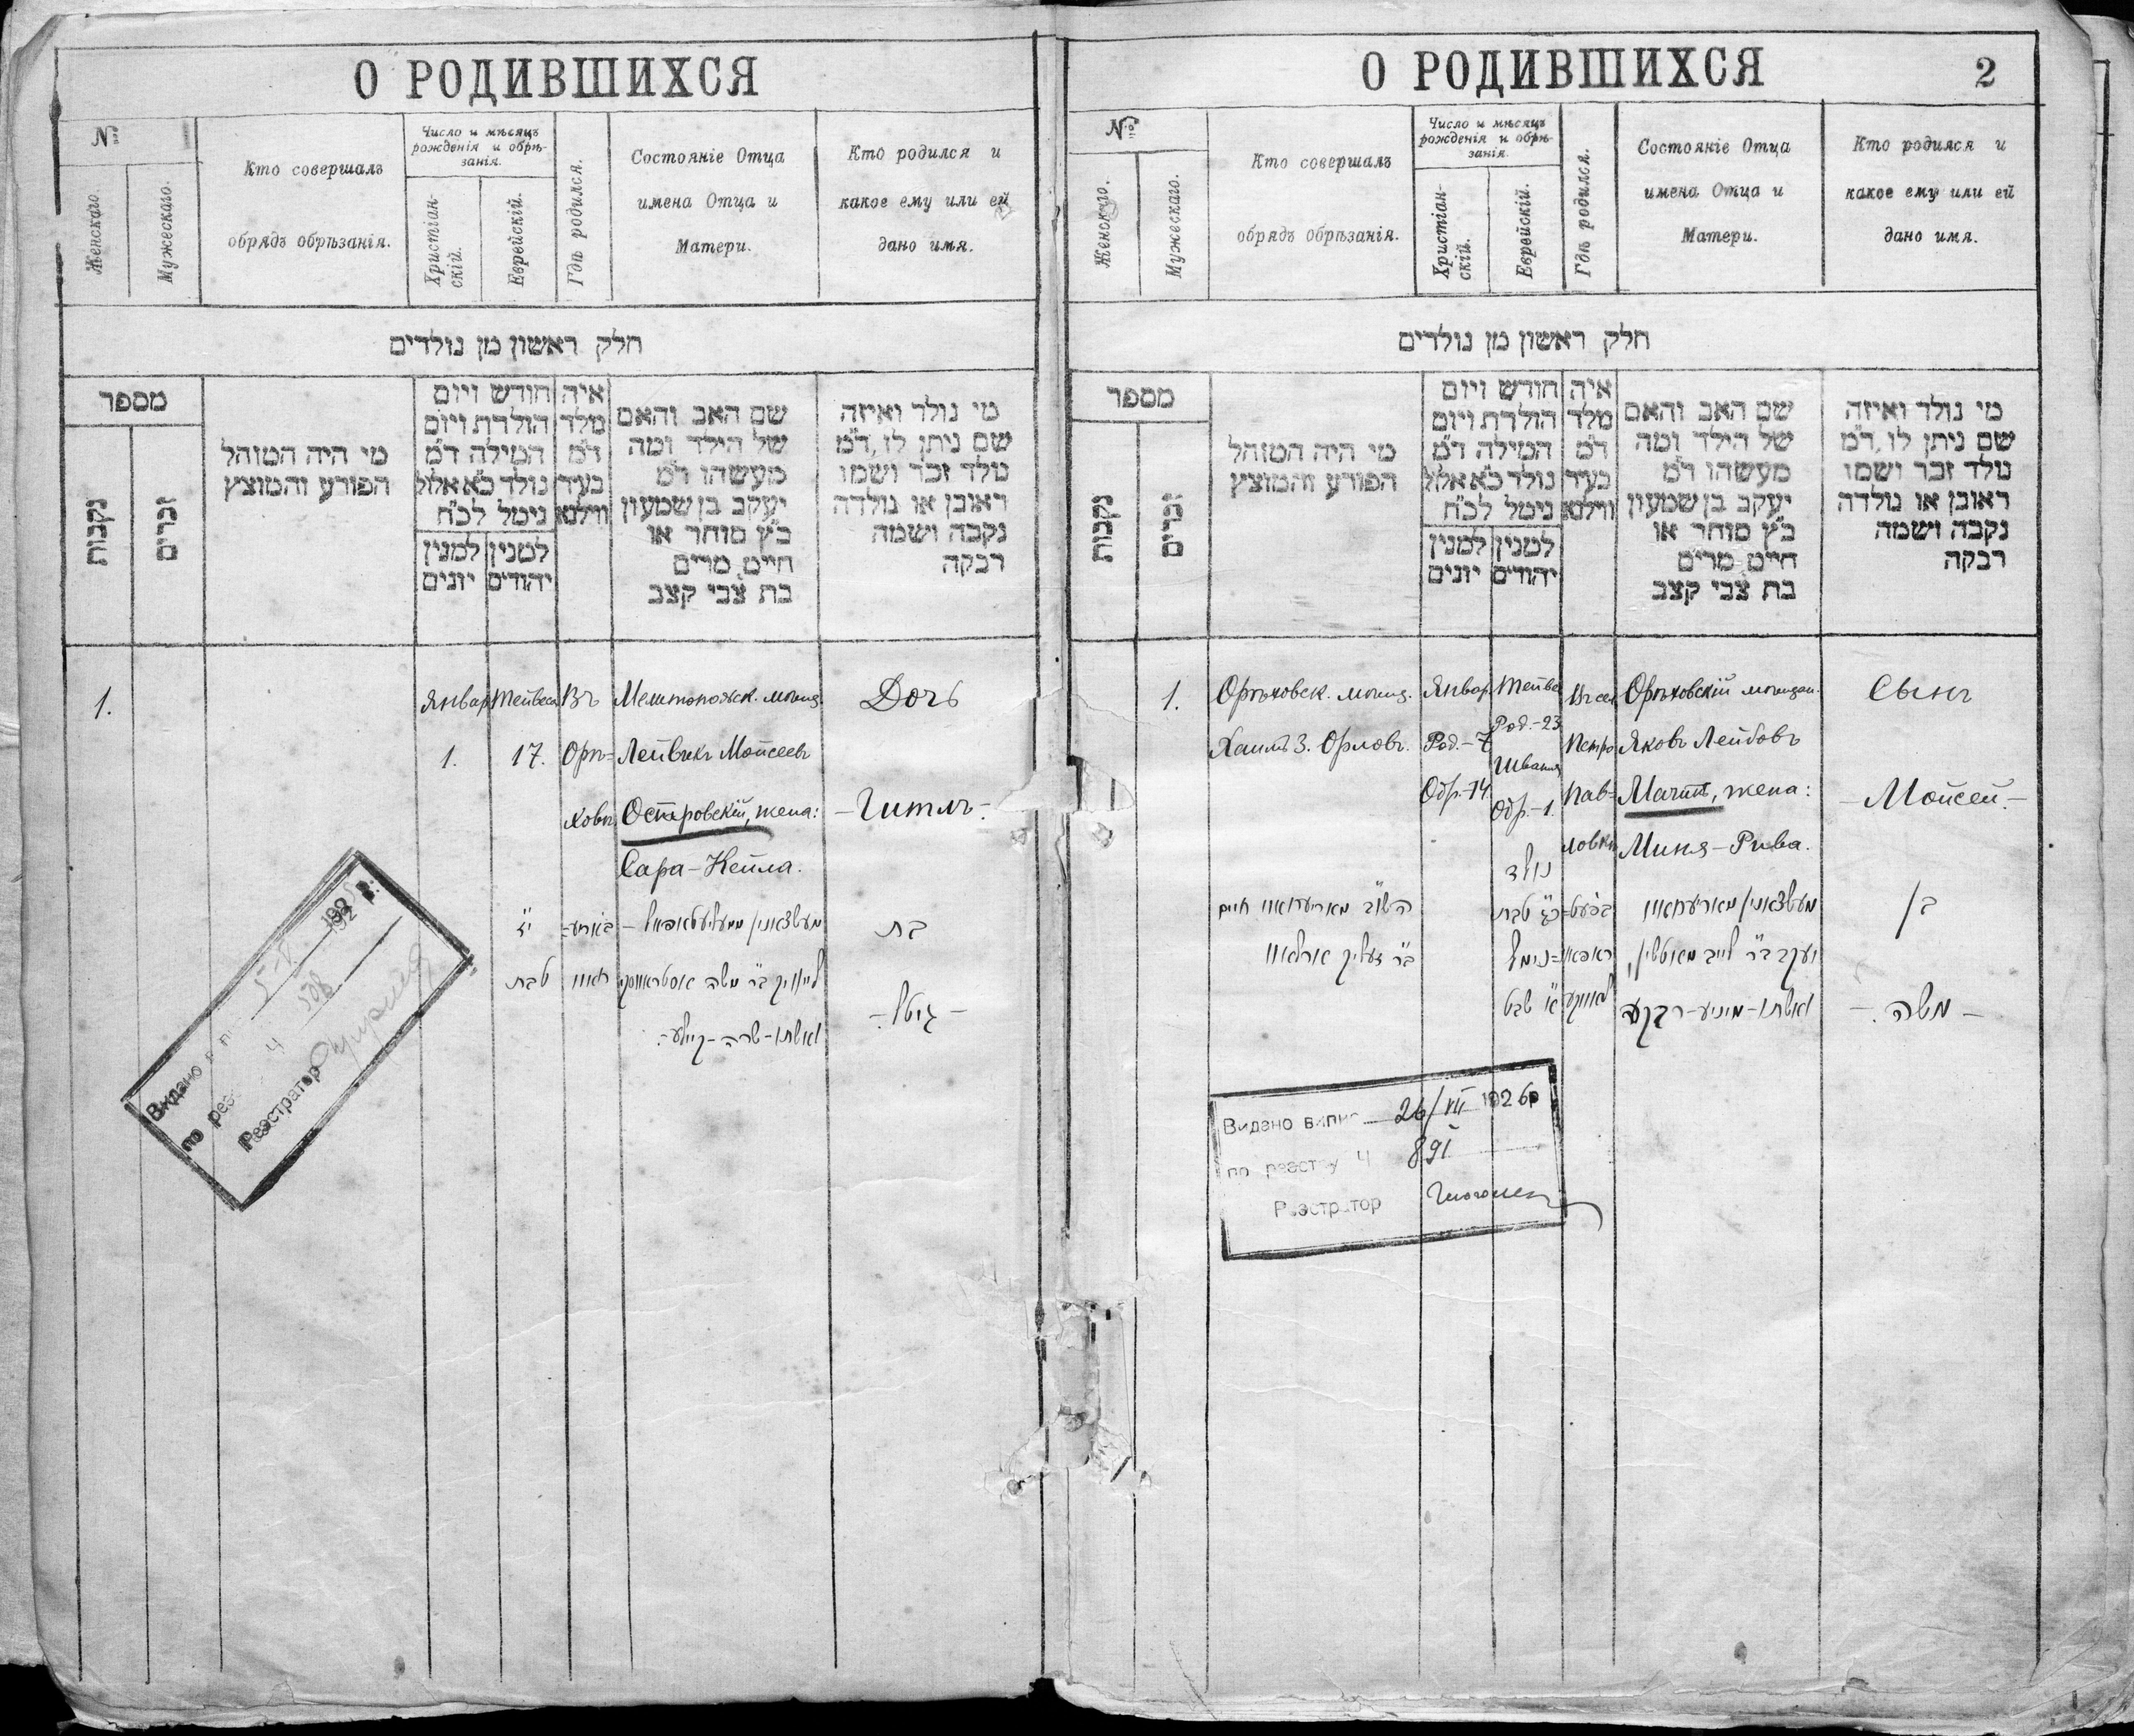 О РОДИВШИХСЯ
№
Женскаго.
Мужескаго.
Кто совершалъ
обрядъ обрѣзанія.
Число и мѣсяцъ
рожденія и обрѣ-
занія.
Христіан-
скій.
Еврейскій.
Гдѣ родился.
Состояніе Отца
имена Отца и
Матери.
Кто родился и
какое ему или ей
дано имя.
חלק ראשון מן נולדים
מספר
נקבות
זכרים
מי היה המוהל
הפורע והמוצץ
חודש ויום
הולדת ויום
המילה ד"מ
נולד כ"א אלול
נימל לכ"ח
למנין יונים
למנין יהודים
איה
מלד
ד"מ
בעיר
ווילנא
שם האב והאם
של הילד ומה
מעשהו ד"מ
יעקב בן שמעון
כ"ץ סוחר או
חייט מרים
בת צבי קצב
מי נולד ואיזה
שם ניתן לו, ד"מ
נולד זכר ושמו
ראובן או נולדה
נקבה ושמה
רבקה
1.
Январ
1.
Тейвеса
17.
Въ
Орѣ=
ховѣ
Мелитопольск. мѣщ.
Лейвикъ Мойсеевъ
Островскій, жена:
Сара-Кейла.
Дочь
-Гитль-.
י"ז
טבת
לייוויק ב"ר משה אסטראווסקי
ואשתו - שרה - קיילע.
בת
- גיטל. -
Видано
по
Реэстратор
О РОДИВШИХСЯ
2
№
Женскаго.
Мужескаго.
Кто совершалъ
обрядъ обрѣзанія.
Число и мѣсяцъ
рожденія и обрѣ-
занія.
Христіан-
скій.
Еврейскій.
Гдѣ родился.
Состояніе Отца
имена Отца и
Матери.
Кто родился и
какое ему или ей
дано имя.
חלק ראשון מן נולדים
מספר
נקבות
זכרים
מי היה המוהל
הפורע והמוצץ
חודש ויום
הולדת ויום
המילה ד"מ
נולד כ"א אלול
נימל לכ"ח
למנין יונים
למנין יהודים
איה
מלד
ד"מ
בעיר
ווילנא
שם האב והאם
של הילד ומה
מעשהו ד"מ
יעקב בן שמעון
כ"ץ סוחר או
חייט מרים
בת צבי קצב
מי נולד ואיזה
שם ניתן לו, ד"מ
נולד זכר ושמו
ראובן או נולדה
נקבה ושמה
רבקה
1.
Орѣховск. мѣщ.
Хаимъ З. Орловъ.
Январ
Род.-7
Обр.-14.
Тейве
Род.-23
Швата
Обр.-1.
Въ сел
Петро
Пав=
ловкѣ
Орѣховскій мѣщан.
Яковъ Лейбовъ
жена:
Миня-Рива.
Сынъ
-Мойсей.-
נולד
כ"ג טבת
נימל
א' שבט
יעקב ב"ר לייב
ואשתו - מיניע - רבקה
בן
- משה. -
Видано випис 26/VII 1926р
по реэстру Ч 891
Реэстратор